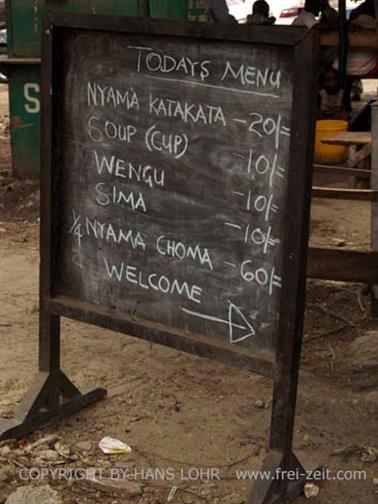 TODAYS MENU
NYAMA KATAKATA - 20/=
SOUP (CUP) - 10/=
WENGU - 10/=
SIMA - 10/=
1/4 NYAMA CHOMA - 60/=
WELCOME
S
COPYRIGHT BY-HANS LOHR www.frei-zeit.com